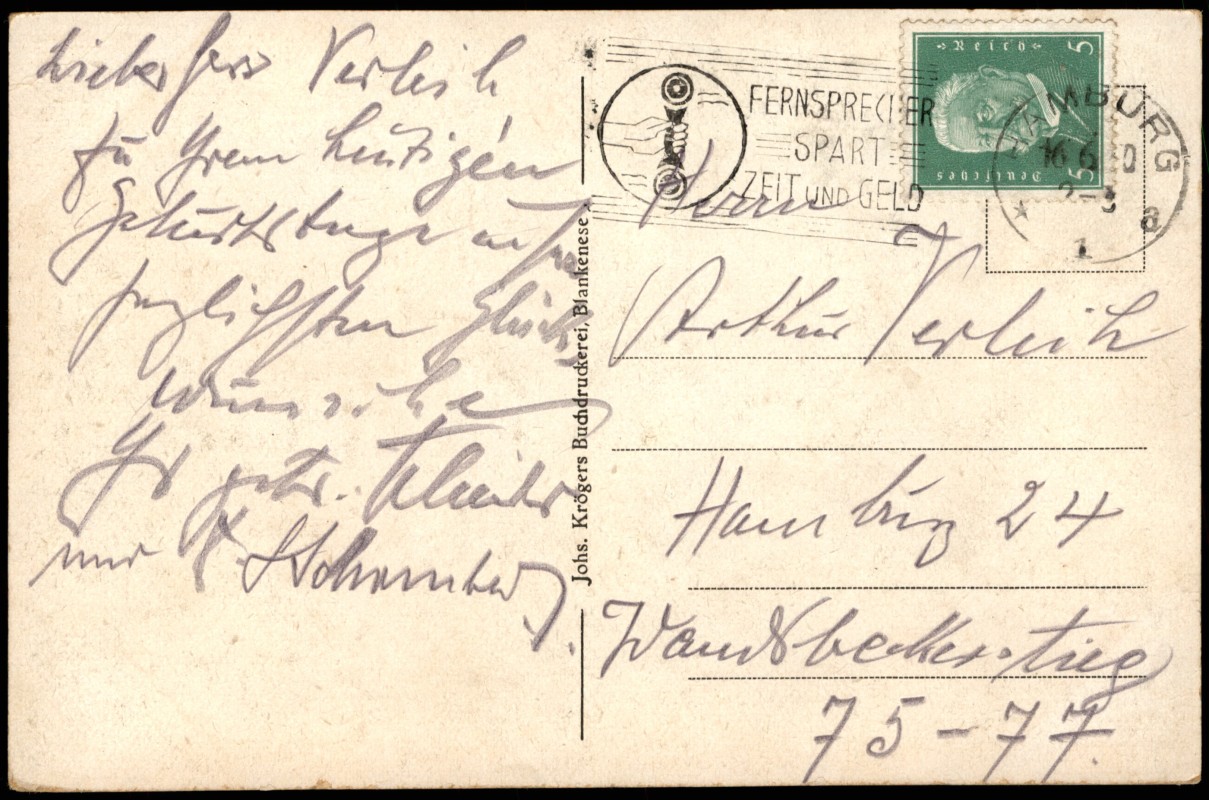 Lieber Herr Verleih
Zu Ihrem heutigen
Geburtstage unsere
herzlichsten Glück-
wünsche
Ihr getr.
und
Johs. Krögers Buchdruckerei, Blankenese
FERNSPRECHER
SPART
ZEIT UND GELD
Deutsches Reich
5 5
HAMBURG
16.6.30
2-3
* 1 a
Herrn
Arthur Verleih
Hamburg 24
Wandsbecker-stieg
75-77